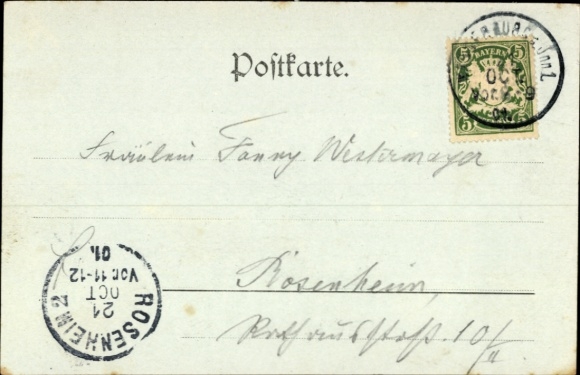 Postkarte.
5 BAYERN 5
5 5
OC
9
01.
Fräulein Fanny Westermayer
Rosenheim,
Rathausstraß. 10/II
ROSENHEIM 2
21
OCT
Vor. 11-12
01.